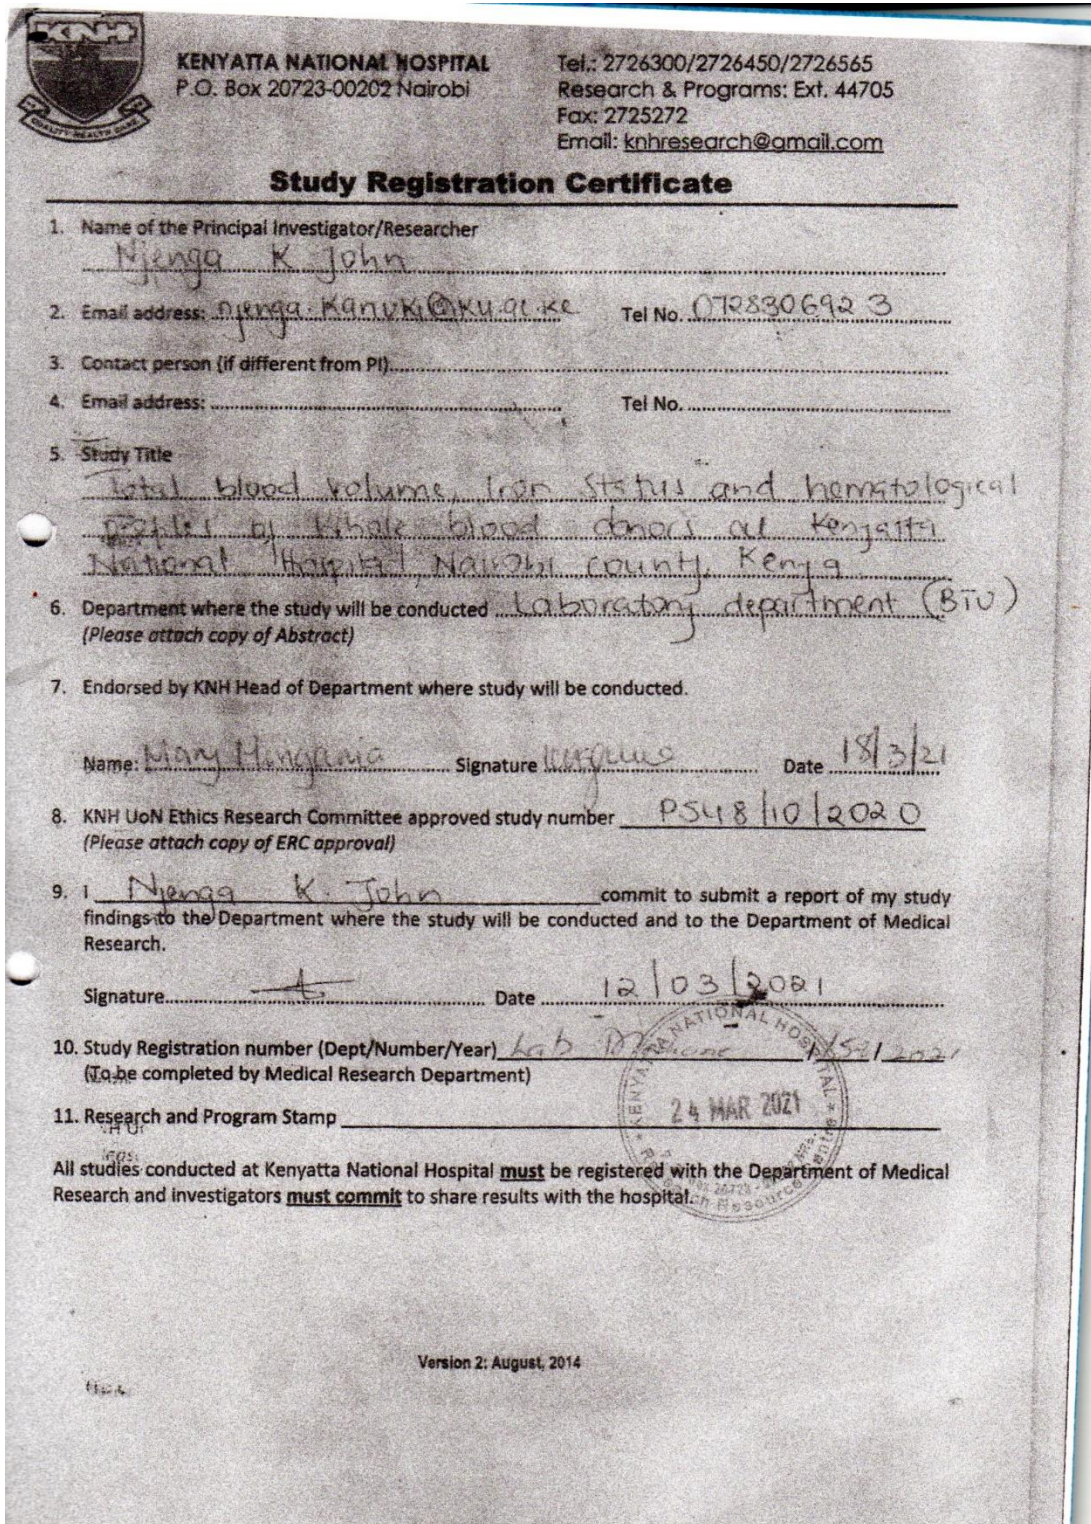 KNH
QUALITY HEALTH CARE
KENYATTA NATIONAL HOSPITAL
P.O. Box 20723-00202 Nairobi
Tel.: 2726300/2726450/2726565
Research & Programs: Ext. 44705
Fax: 2725272
Email: knhresearch@gmail.com
Study Registration Certificate
1. Name of the Principal Investigator/Researcher
Njenga K John
2. Email address: njenga.kanuki@ku.ac.ke Tel No. 0728306923
3. Contact person (if different from PI)
4. Email address: Tel No.
5. Study Title
Total blood volume, Iron Status and hematological
profiles of Whole blood donors at Kenyatta
National Hospital, Nairobi county, Kenya
6. Department where the study will be conducted Laboratory department (BTU)
(Please attach copy of Abstract)
7. Endorsed by KNH Head of Department where study will be conducted.
Name: Mary Signature Date 18/3/21
8. KNH UoN Ethics Research Committee approved study number P548/10/2020
(Please attach copy of ERC approval)
9. I Njenga K. John commit to submit a report of my study
findings to the Department where the study will be conducted and to the Department of Medical
Research.
Signature Date 12/03/2021
10. Study Registration number (Dept/Number/Year) Lab Medicine / /2021
(To be completed by Medical Research Department)
11. Research and Program Stamp
KENYATTA NATIONAL HOSPITAL
24 MAR 2021
All studies conducted at Kenyatta National Hospital must be registered with the Department of Medical
Research and investigators must commit to share results with the hospital.
Version 2: August, 2014